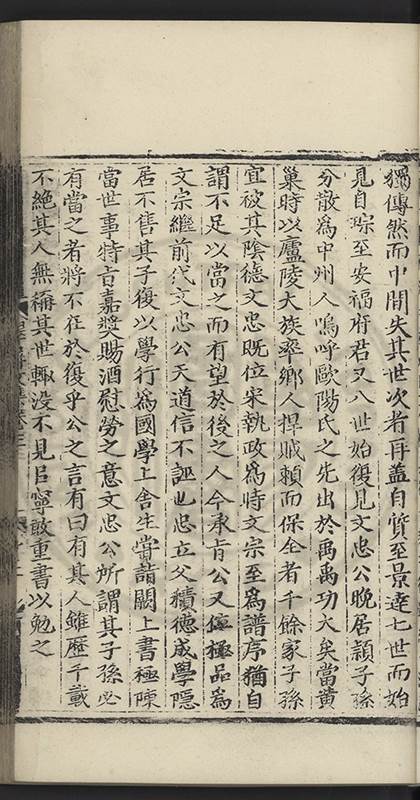 獨傳然而中間失其世次者再蓋自質至景達七世而始
見自琮至安福府君又八世始復見文忠公晚居潁子孫
分散為中州人嗚呼歐陽氏之先出於禹禹功大矣當黃
巢時以廬陵大族率鄉人捍賊賴而保全者千餘家子孫
宜被其陰德文忠既位宋執政為時文宗至為譜序猶自
謂不足以當之而有望於後之人今承旨公又位極品為
文宗繼前代文忠公天道信不誣也忠立父積德成學隱
居不售其子復以學行為國學上舍生嘗詣闕上書極陳
當世事特旨嘉獎賜酒慰勞之意文忠公所謂其子孫必
有當之者將不在於復乎公之言有曰有其人雖歷千載
不絕其人無稱其世輒沒不見吕寧敢重書以勉之